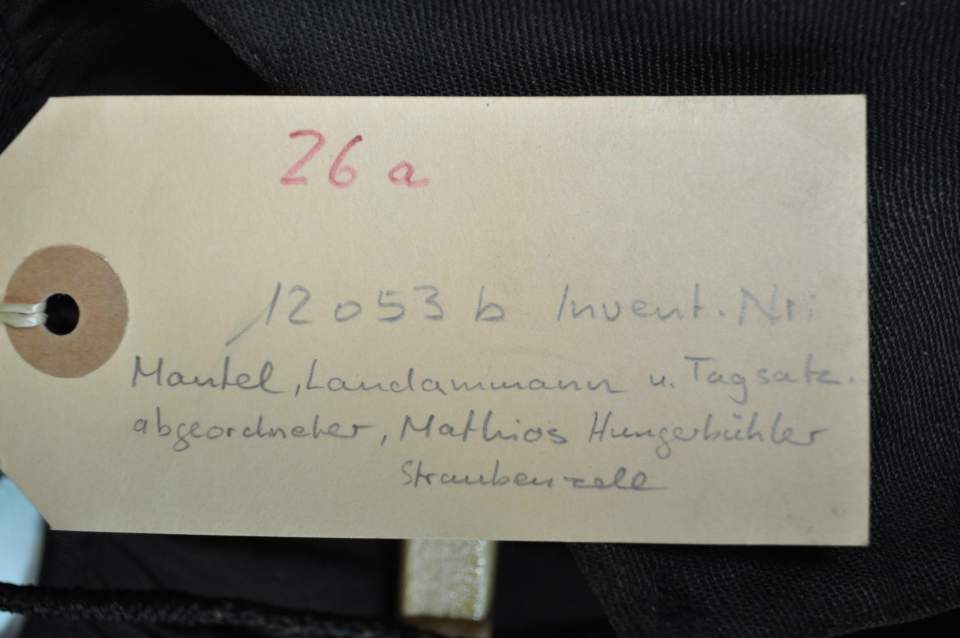 26 a
12053 b Invent. Nr:
Mantel, Landammann u. Tagsatz.
abgeordneter, Mathias Hungerbühler
Straubenzell